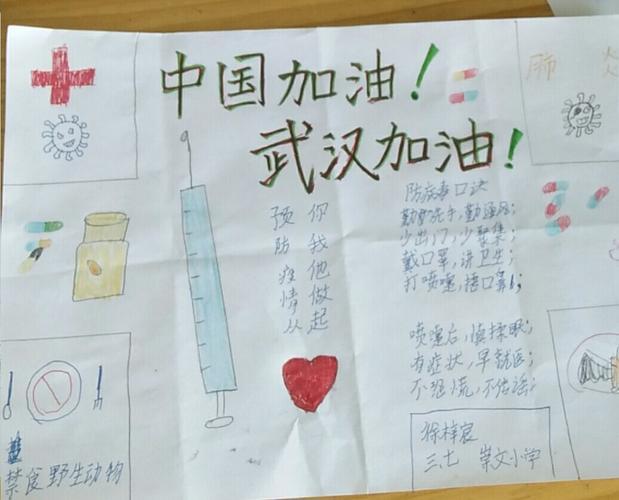 中国加油!
武汉加油!
肺炎
预防疫情从
你我他做起
防病毒口诀
勤洗手,勤通风;
少出门,少聚集;
戴口罩,讲卫生;
打喷嚏,捂口鼻;
喷嚏后,慎揉眼;
有症状,早就医;
不恐慌,不传谣;
禁食野生动物
徐梓宸
三.七 崇文小学